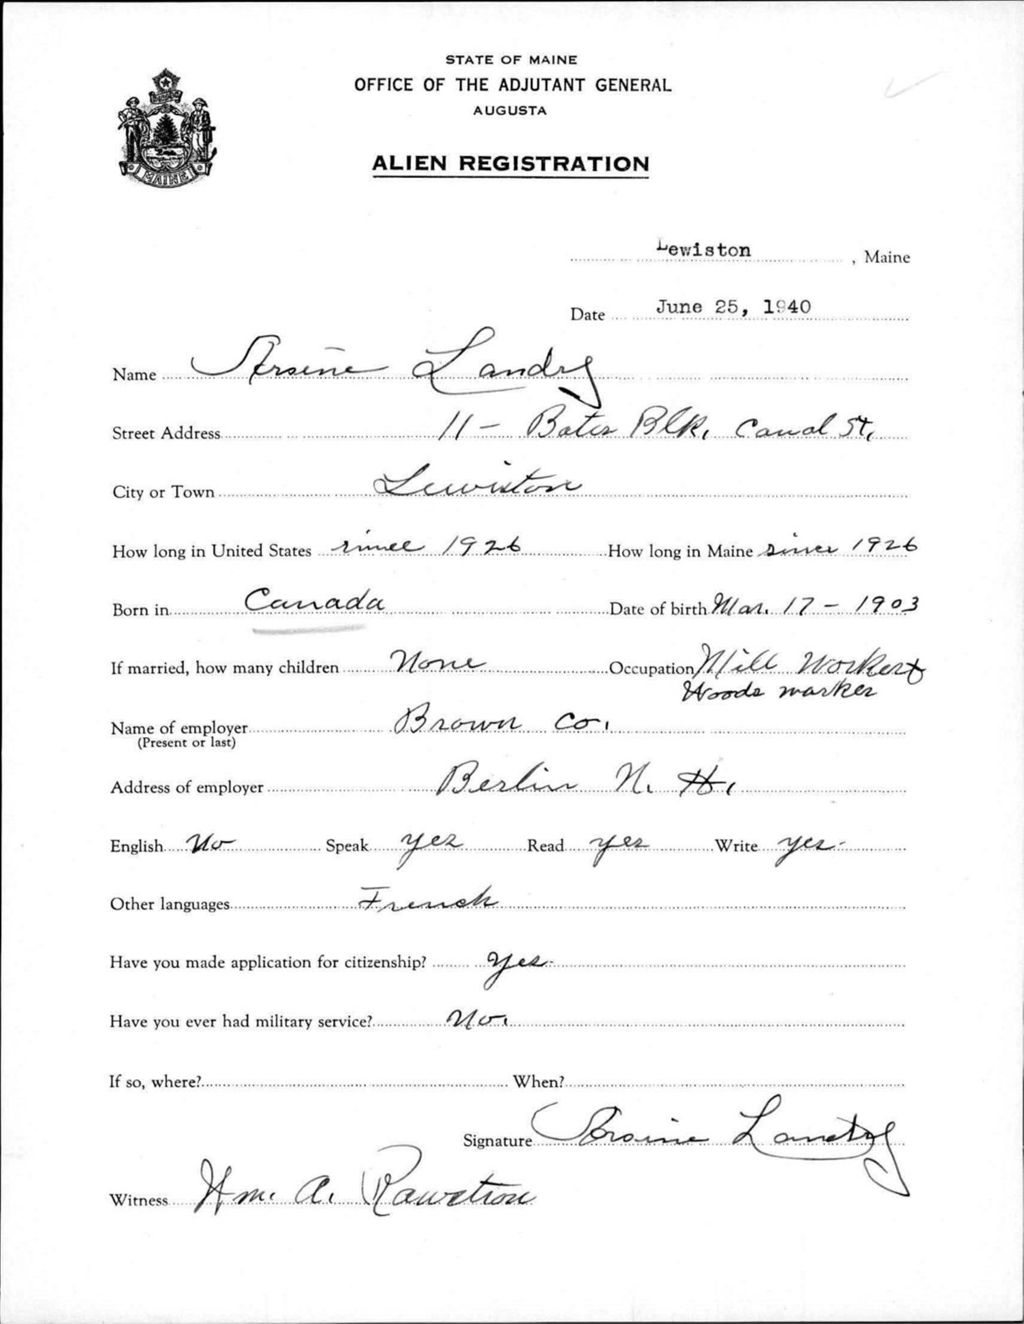 STATE OF MAINE
OFFICE OF THE ADJUTANT GENERAL
AUGUSTA
ALIEN REGISTRATION
MAINE
Lewiston, Maine
Date June 25, 1940
Name Arsene Landry
Street Address 11 - Bates Blk. Canal St.
City or Town Lewiston
How long in United States since 1926 How long in Maine since 1926
Born in Canada Date of birth Mar. 17 - 1903
If married, how many children None Occupation Mill Worker &
Woods worker
Name of employer Brown Co.
(Present or last)
Address of employer Berlin N. H.
English No Speak yes Read yes Write yes
Other languages French
Have you made application for citizenship? Yes
Have you ever had military service? No.
If so, where? When?
Signature Arsene Landry
Witness Wm. A. Rawstron